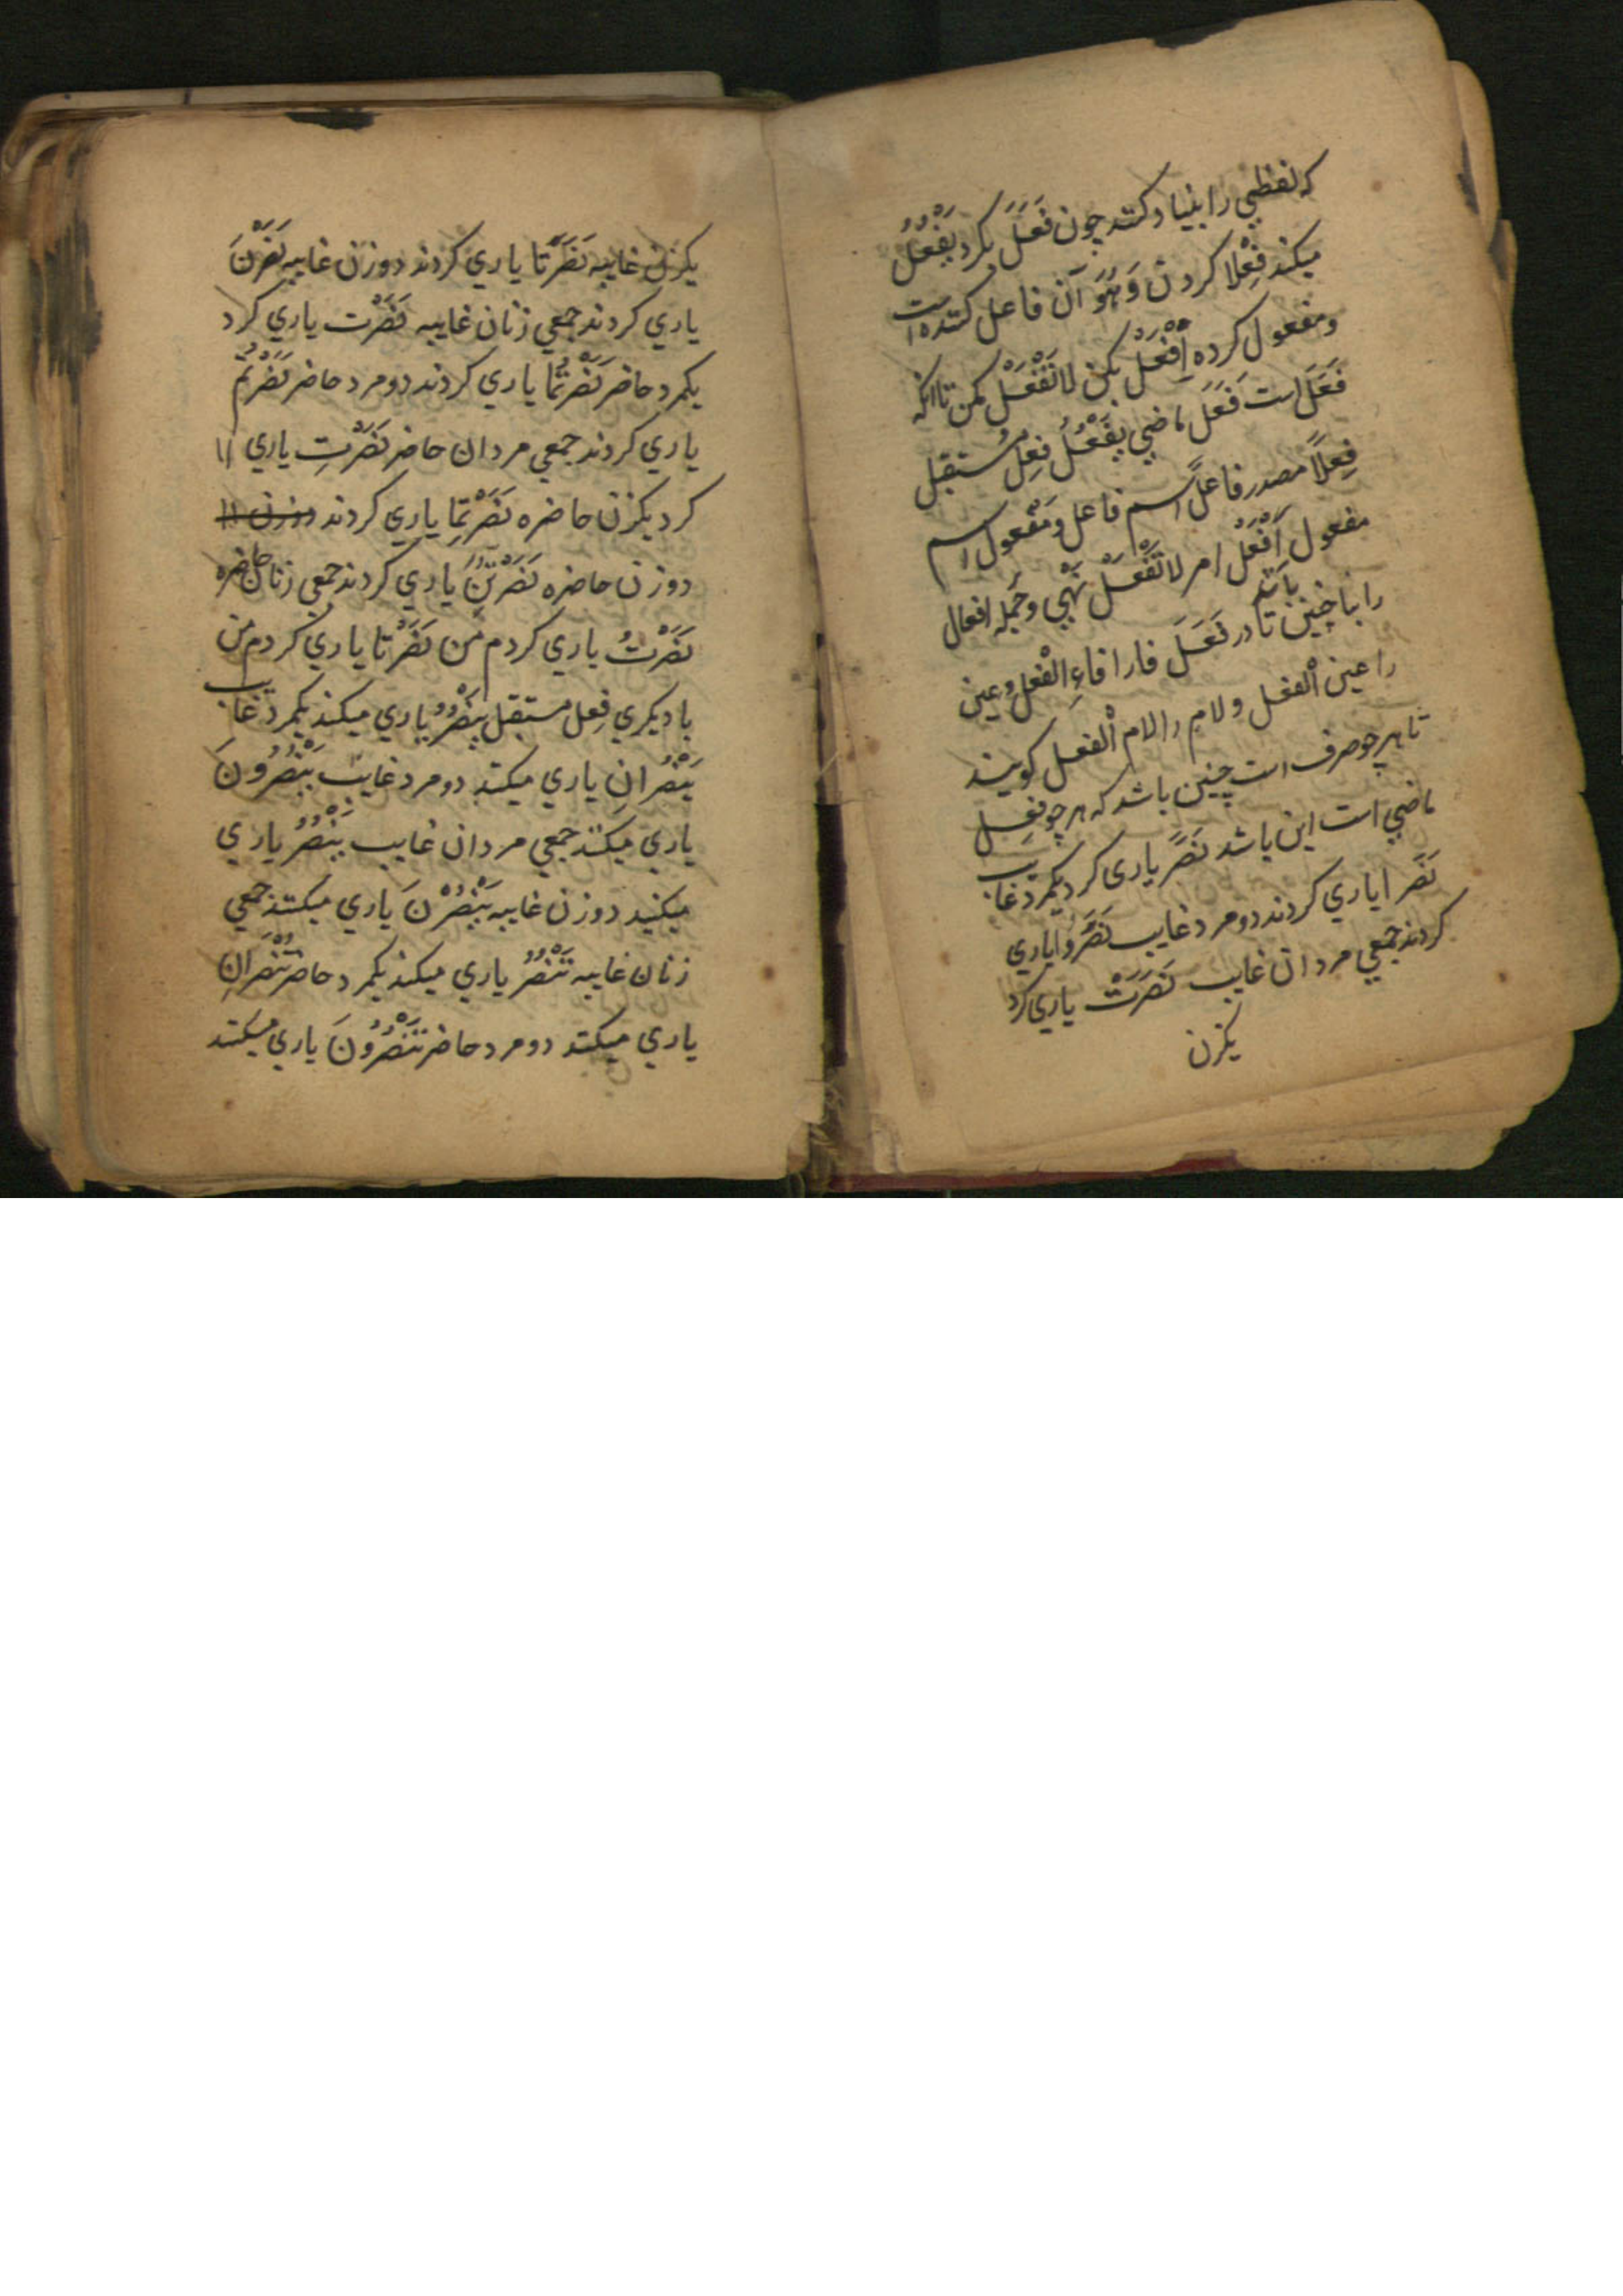 که لفظی را بنیاد کنند چون فَعَلَ بکرد یَفْعُلُ
میکند فِعْلا کردن وَ هُوَ آن فاعل کننده است
و مفعول کرده اِفْعَلْ بکن لا تَفْعَلْ مکن تا انکه
فَعَلَ است فَعَلَ ماضی یَفْعُلُ فِعل مُستقبل
فِعِلاً مصدر فاعلٌ اسم فاعل و مَفْعول اسم
مفعول اَفْعَلْ امر لا تَفْعَلْ نَهْی و جُمله افعال
را بنا چنین باید تا در فَعَلَ فا را فاءِ الْفعل و عین
را عین الْفعل و لام را لام الْفعل کویند
تا هر چو صرف است چنین باشد که هر چو فِعِل
ماضی است این باشد نَصَرَ یاری کرد یکمرد غایب
نَصَرا یاری کردند دومرد غایب نَصَرُوا یاری
کردند جمعی مردان غایب نَصَرَتْ یاری کرد
یکزن
یکزن غایبه نَصَرَتا یاری کردند دوزن غایبه نَصَرْنَ
یاری کردند جمعی زنان غایبه نَصَرْت یاری کرد
یکمرد حاضر نَصَرْتُما یاری کردند دومرد حاضر نَصَرْتُمْ
یاری کردند جمعی مردان حاضر نَصَرْتِ یاری اا
کرد یکزن حاضره نَصَرْتُمِا یاری کردند دوزن اا
دوزن حاضره نَصَرْتُنَّ یاری کردند جمعی زنان حاضره
نَصَرْتُ یاری کردم من نَصَرْنا یاری کردم من
با دیکری فِعل مستقبل یَنْصُرُ یاری میکند یکمرد غایب
یَنْصُرانِ یاری میکند دومرد غایب یَنْصُرُونَ
یاری میکنند جمعی مردان غایب یَنْصُرُ یاری
میکنید دوزن غایبه یَنْصُرْنَ یاری میکنند جمعی
زنان غایبه تَنْصُرُ یاری میکند یکمرد حاضر تَنْصُرانِ
یاری میکند دومرد حاضر تَنْصُرُونَ یاری میکند